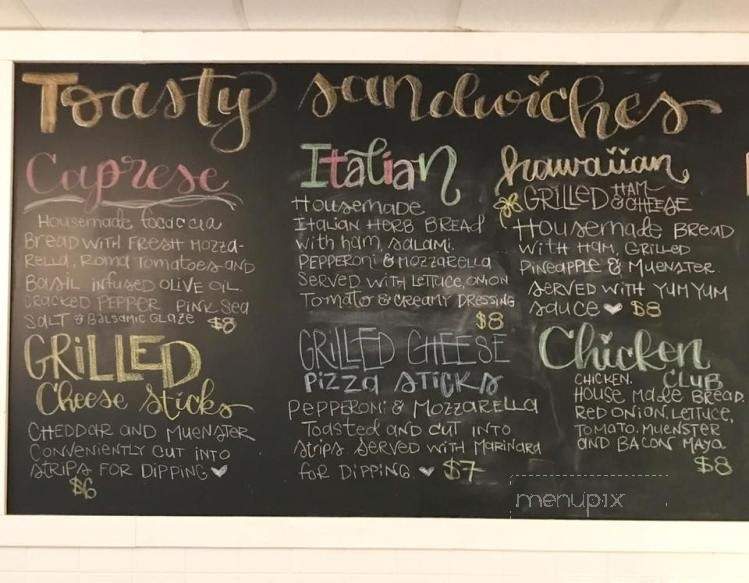 Toasty sandwiches
Caprese
Housemade focaccia
Bread with Fresh Mozza-
rella, Roma Tomatoes and
Basil infused olive oil.
cracked pepper pink sea
salt & Balsamic Glaze $8
GRILLED
Cheese Sticks
Cheddar and Muenster
conveniently cut into
strips for dipping
$6
Italian
Housemade
Italian Herb Bread
with ham, salami,
pepperoni & mozzarella
served with lettuce, onion
Tomato & creamy dressing
$8
GRILLED CHEESE
Pizza Sticks
Pepperoni & Mozzarella
Toasted and cut into
strips served with marinara
for dipping. $7
hawaiian
GRILLED HAM & CHEESE
Housemade Bread
with Ham, Grilled
Pineapple & Muenster
served with yum yum
sauce $8
Chicken
CHICKEN. CLUB
House made Bread.
Red onion, lettuce,
Tomato, muenster
and Bacon Mayo.
$8
menupix